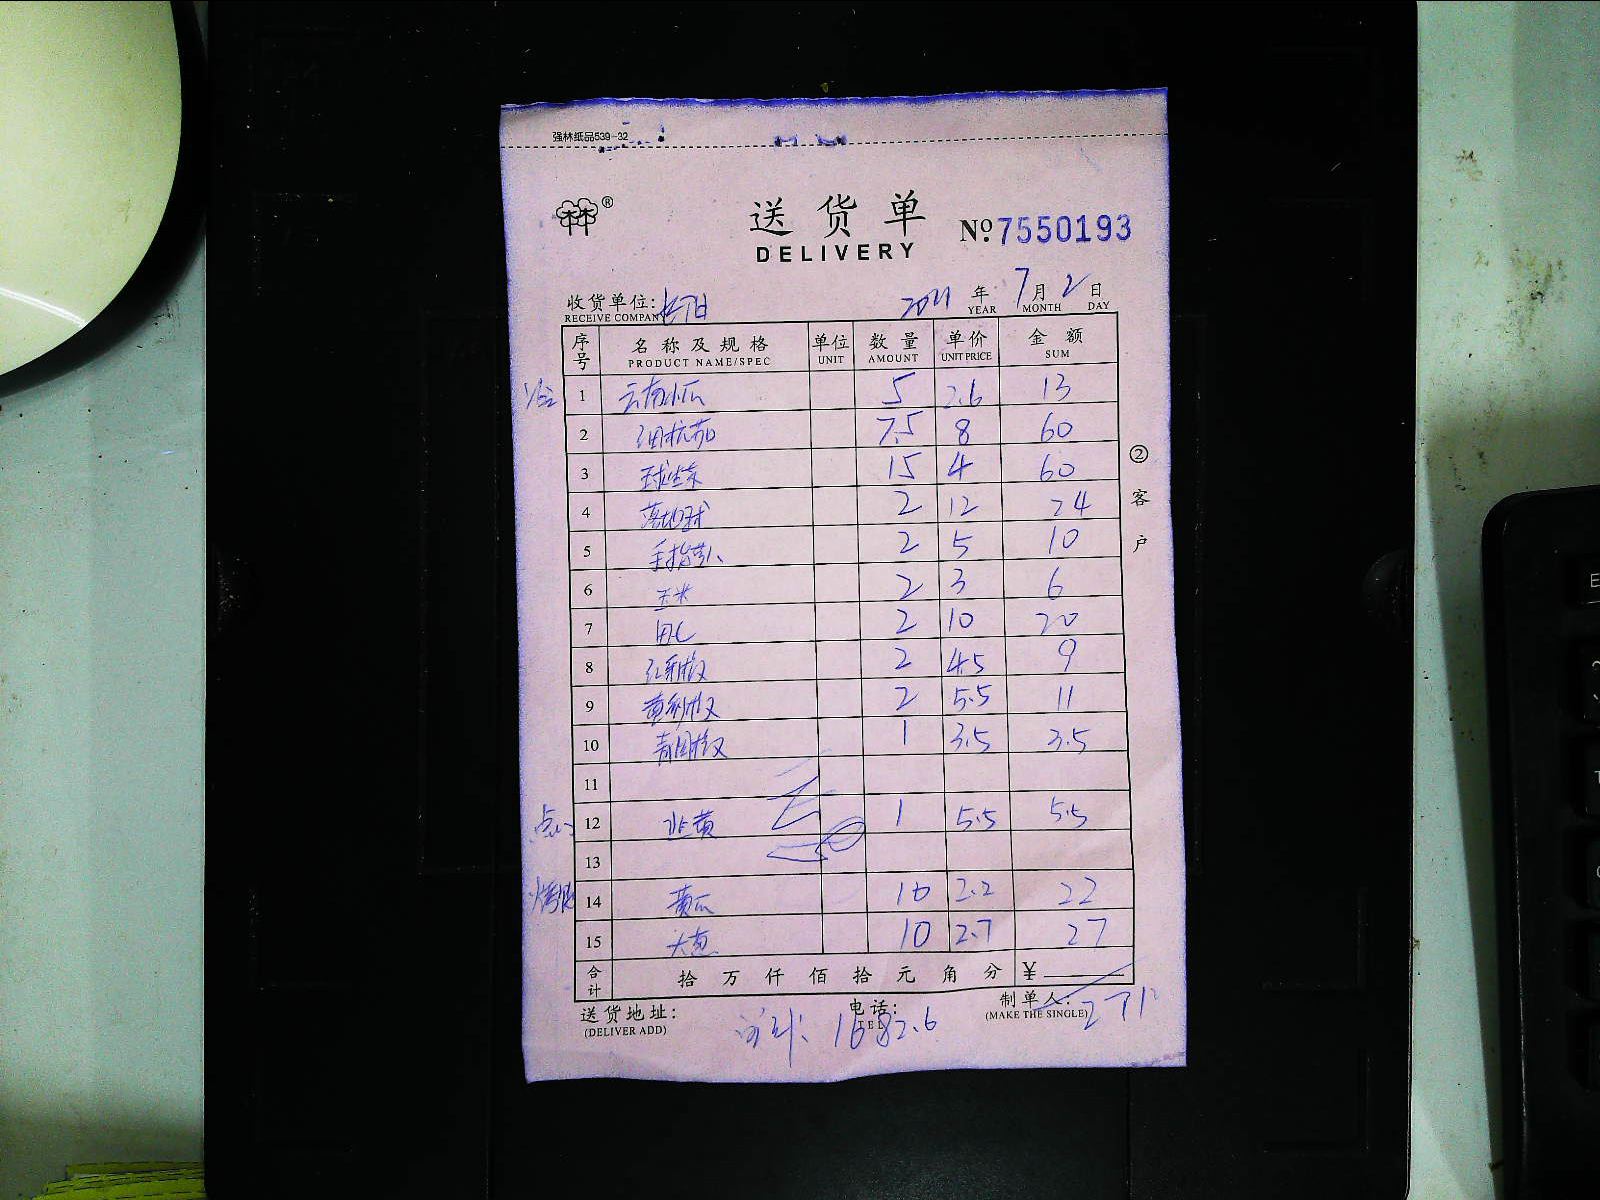 强林纸品539-32
®
送货单
№ 7550193
DELIVERY
收货单位:
2021 年 7 月 2 日
RECEIVE COMPANY YEAR MONTH DAY
序号 名称及规格 单位 数量 单价 金额
PRODUCT NAME/SPEC UNIT AMOUNT UNIT PRICE SUM
1 云南小瓜 5 2.6 13
2 7.5 8 60
3 球生菜 15 4 60
4 2 12 24
5 手指 2 5 10
6 玉米 2 3 6
7 2 10 20
8 红圆椒 2 4.5 9
9 黄圆椒 2 5.5 11
10 青圆椒 1 3.5 3.5
11
点心 12 韭黄 1 5.5 5.5
13
烧腊 14 黄瓜 10 2.2 22
15 大葱 10 2.7 27
合计 拾 万 仟 佰 拾 元 角 分 ¥
②客户
送货地址: 电话: 制单人: 271
(DELIVER ADD) TEL (MAKE THE SINGLE)
1682.6